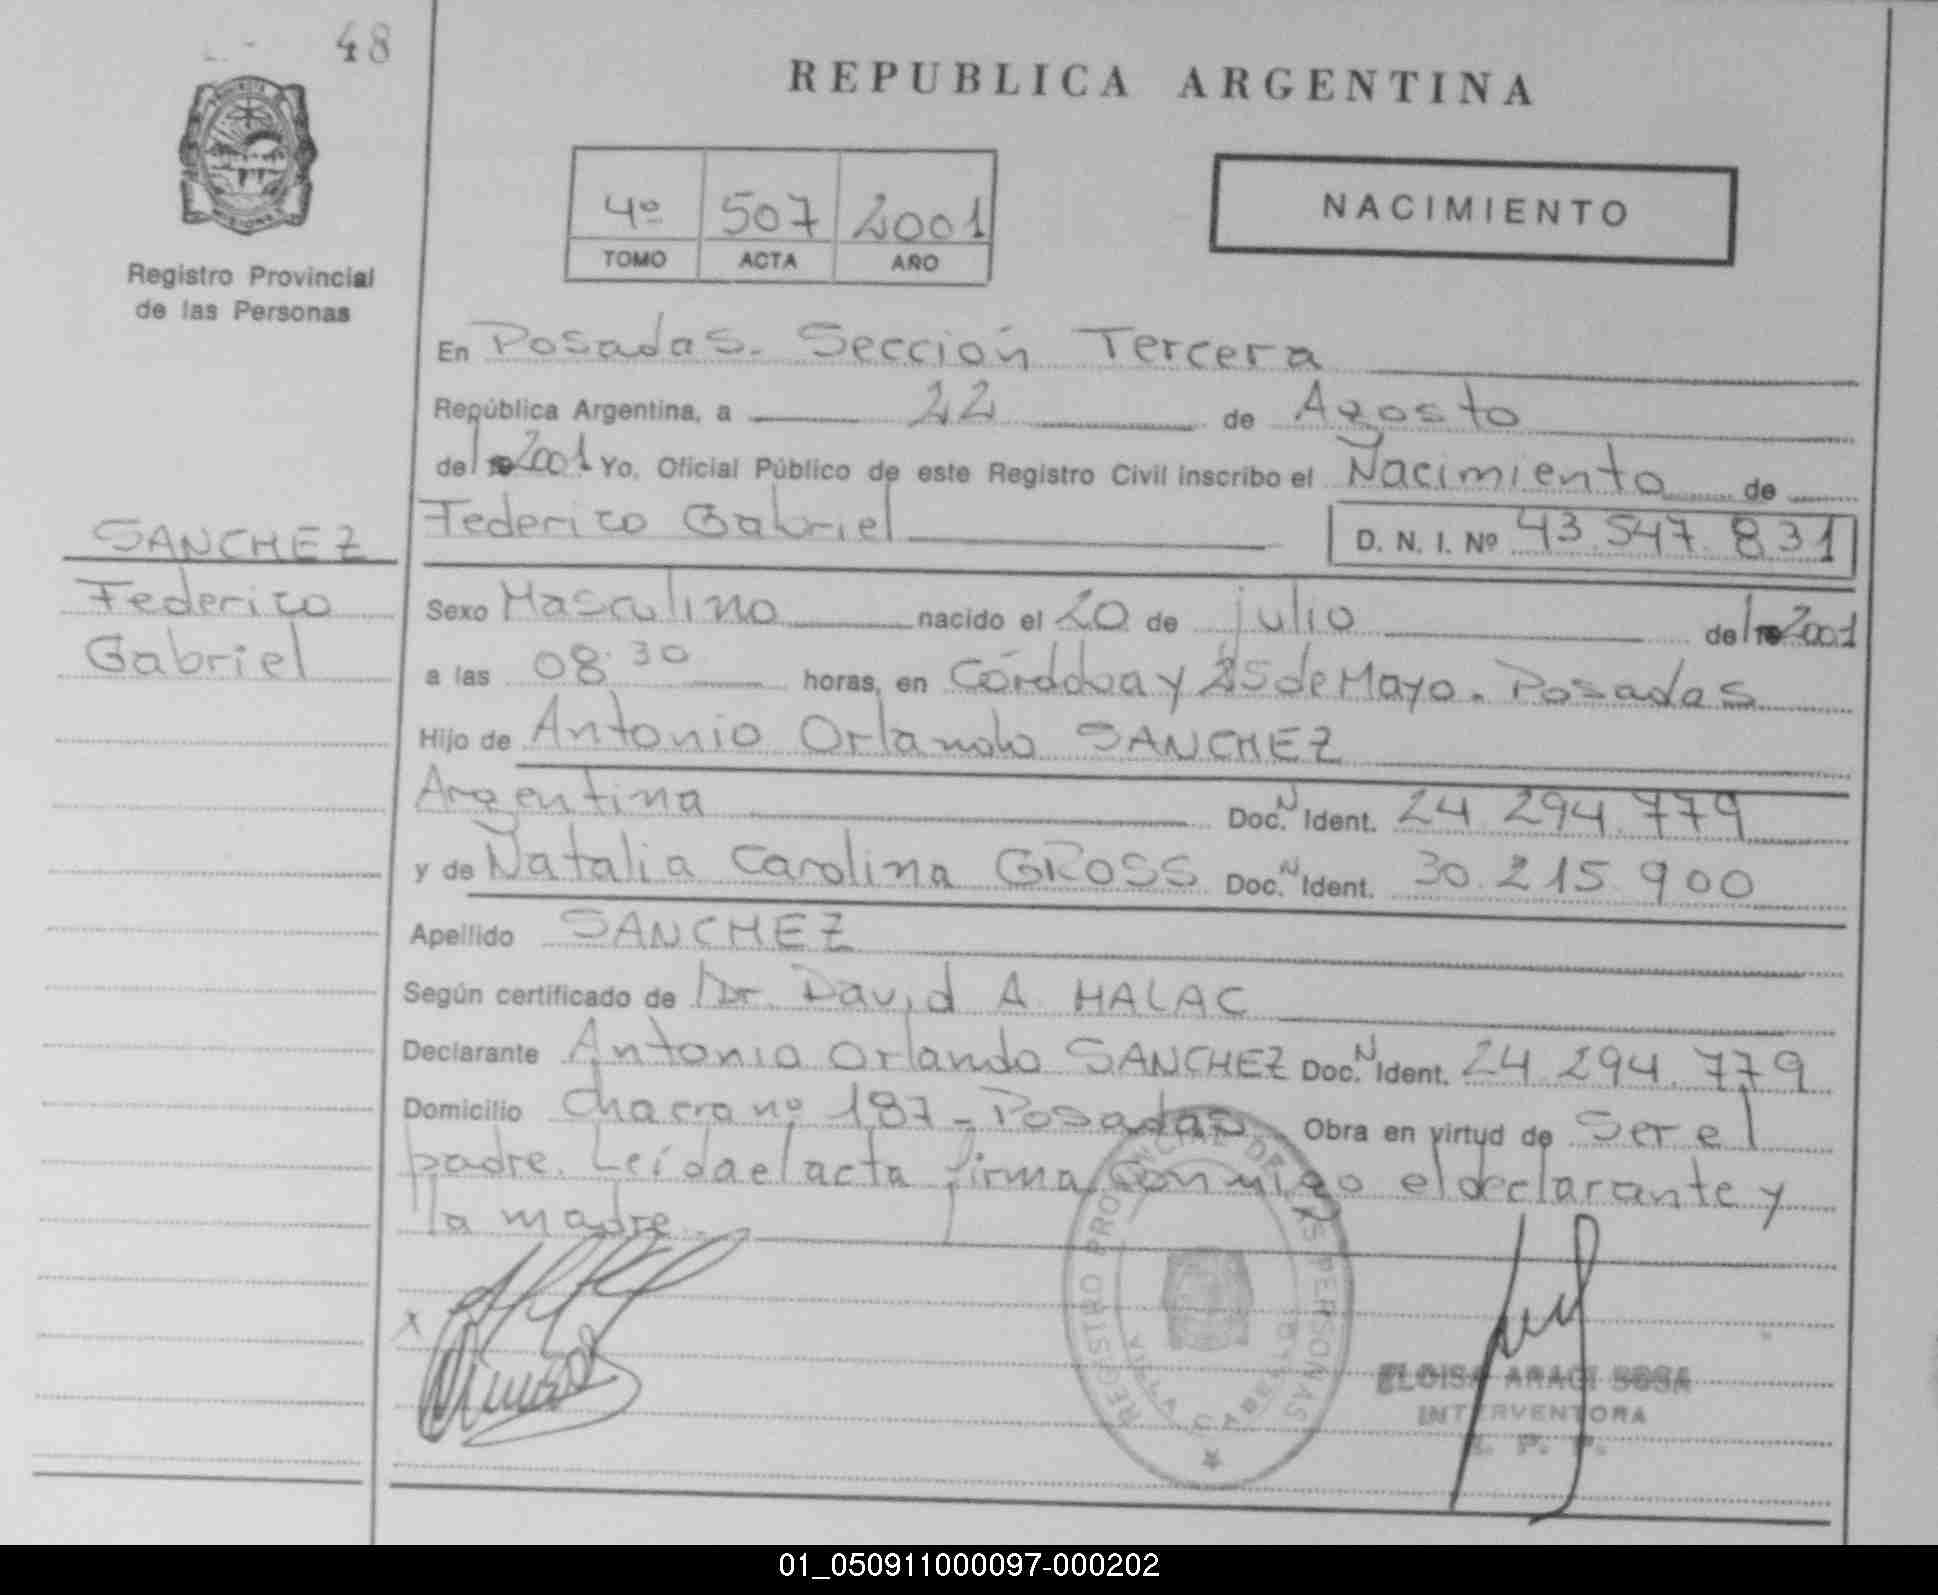 48
REPUBLICA ARGENTINA
4º 507 2001
TOMO ACTA AÑO
NACIMIENTO
Registro Provincial
de las Personas
En Posadas. Sección Tercera
República Argentina, a 22 de Agosto
del 2001 Yo, Oficial Público de este Registro Civil inscribo el Nacimiento de
Federico Gabriel D. N. I. Nº 43.547.831
SANCHEZ
Federico
Gabriel
Sexo Masculino nacido el 20 de julio del 2001
a las 08:30 horas, en Córdoba y 25 de Mayo. Posadas
Hijo de Antonio Orlando SANCHEZ
Argentina Doc. N Ident. 24.294.779
y de Natalia Carolina GROSS Doc. N Ident. 30.215.900
Apellido SANCHEZ
Según certificado de Dr. David A. HALAC
Declarante Antonio Orlando SANCHEZ Doc. N Ident. 24.294.779
Domicilio Chacra nº 187 - Posadas Obra en virtud de Ser el
padre. Leída el acta firma conmigo el declarante y
la madre.
x
REGISTRO PROVINCIAL DE LAS PERSONAS
ELOISA ARACI SOSA
INTERVENTORA
R. P. P.
01_050911000097-000202